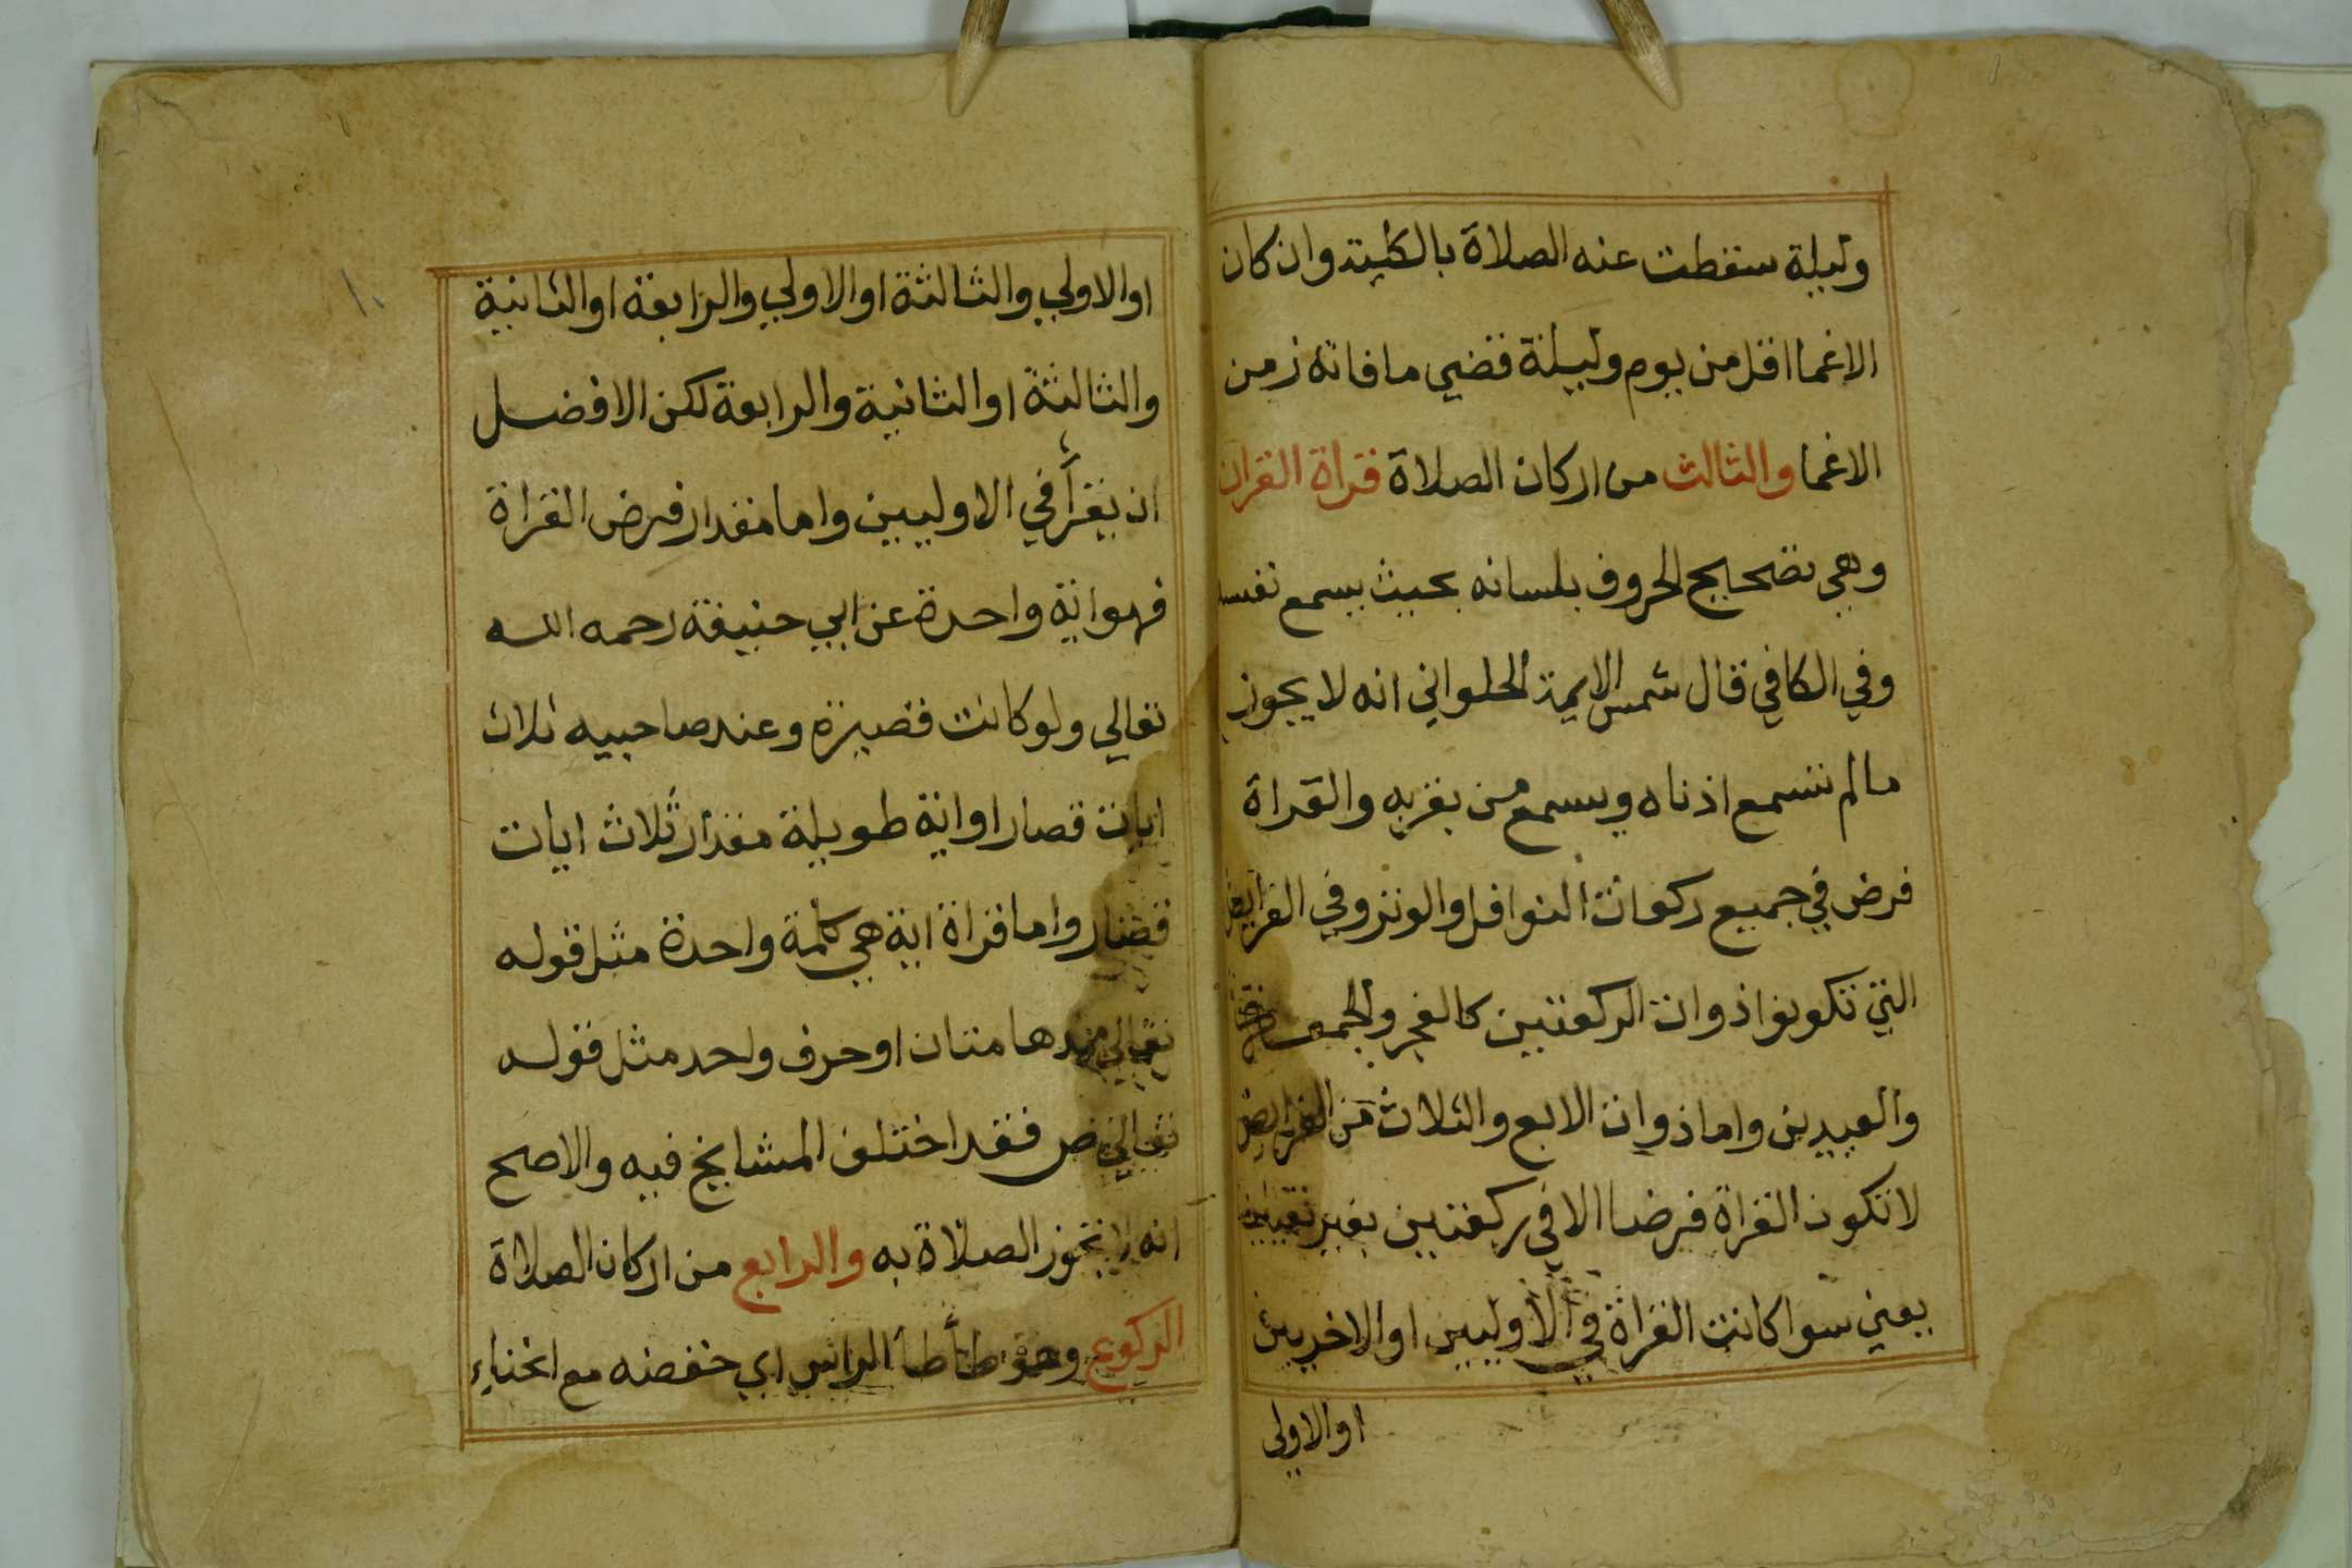 وليلة سقطت عنه الصلاة بالكلية وان كان
الاغما اقل من يوم وليلة قضي ما فاته زمن
الاغما والثالث من اركان الصلاة قراة القران
وهي تصحيح الحروف بلسانه بحيث يسمع نفسه
وفي الكافي قال شمس الايمة الحلواني انه لا يجوز
مالم تسمع اذناه ويسمع من بقربه والقراة
فرض في جميع ركعات النوافل والوتر وفي الفرايض
التي تكون ذوات الركعتين كالفجر والجمعة
والعيدين واما ذوات الاربع والثلاث من الفرايض
لا تكون القراة فرضا الا في ركعتين بغير تعيين
يعني سوا كانت القراة في الاوليين او الاخريين
او الاولى
١٠
او الاولي والثالثة او الاولي والرابعة او الثانية
والثالثة او الثانية والرابعة لكن الافضل
ان يقرأ في الاوليين واما مقدار فرض القراة
فهو اية واحدة عن ابي حنيفة رحمه الله
تعالي ولو كانت قصيرة وعند صاحبيه ثلاث
ايات قصار او اية طويلة مقدار ثلاث ايات
قصار واما قراة اية هي كلمة واحدة مثل قوله
تعالي مدهامتان او حرف واحد مثل قوله
تعالي ص فقد اختلف المشايخ فيه والاصح
انه لا تجوز الصلاة به والرابع من اركان الصلاة
الركوع وهو طأطأ الراس اي خفضه مع انحناء